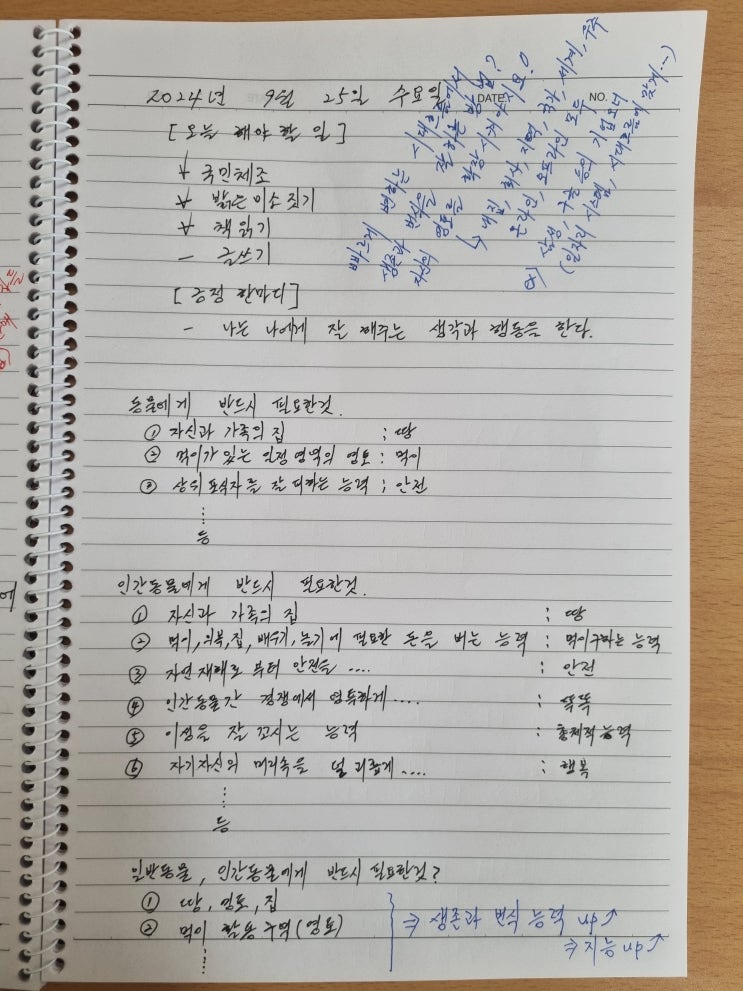 2024년 9월 25일 수요일
DATE.
NO.
[오늘 해야 할 일]
∀ 국민체조
∀ 밝는 미소 짓기
∀ 책 읽기
- 글쓰기
[긍정 한마디]
- 나는 나에게 잘 해주는 생각과 행동을 한다.
빠르게 변하는 시대흐름에서
생존과 번식을 잘하는 방법?
자신의 영토를 확장시켜야지요!
↳ 내집, 회사, 지역, 국가, 세계, 우주
온라인, 오프라인, 모두
예) 삼성, 구글 등의 기업보다
(일자리 시스템, 시대흐름에 맞게…)
동물에게 반드시 필요한것.
① 자신과 가족의 집 ; 땅
② 먹이가 있는 일정영역의 영토 : 먹이
③ 상위포식자를 잘 피하는 능력 ; 안전
⋮
등
인간동물에게 반드시 필요한것.
① 자신과 가족의 집 : 땅
② 먹이, 의복, 집, 배우기, 놀기에 필요한 돈을 버는 능력 : 먹이구하는 능력
③ 자연재해로 부터 안전을 .... : 안전
④ 인간동물간 경쟁에서 영특하게 ..... : 똑똑
⑤ 이성을 잘 꼬시는 능력 : 총체적능력
⑥ 자기자신의 머리속을 덜 괴롭게 .... : 행복
⋮
등
일반동물, 인간동물에게 반드시 필요한것?
① 땅, 영토, 집
② 먹이 활동 구역(영토)
⋮
⇒ 생존과 번식 능력 up↗
⇒ 지능 up↗
에